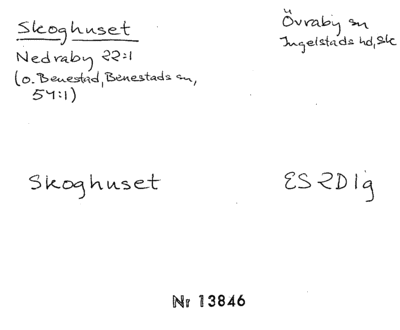 Skoghuset
Nedraby 22:1
(o. Benestad, Benestads sn,
54:1)
Övraby sn
Ingelstads hd, Sk
Skoghuset
ES 2D 1g
Nr 13846